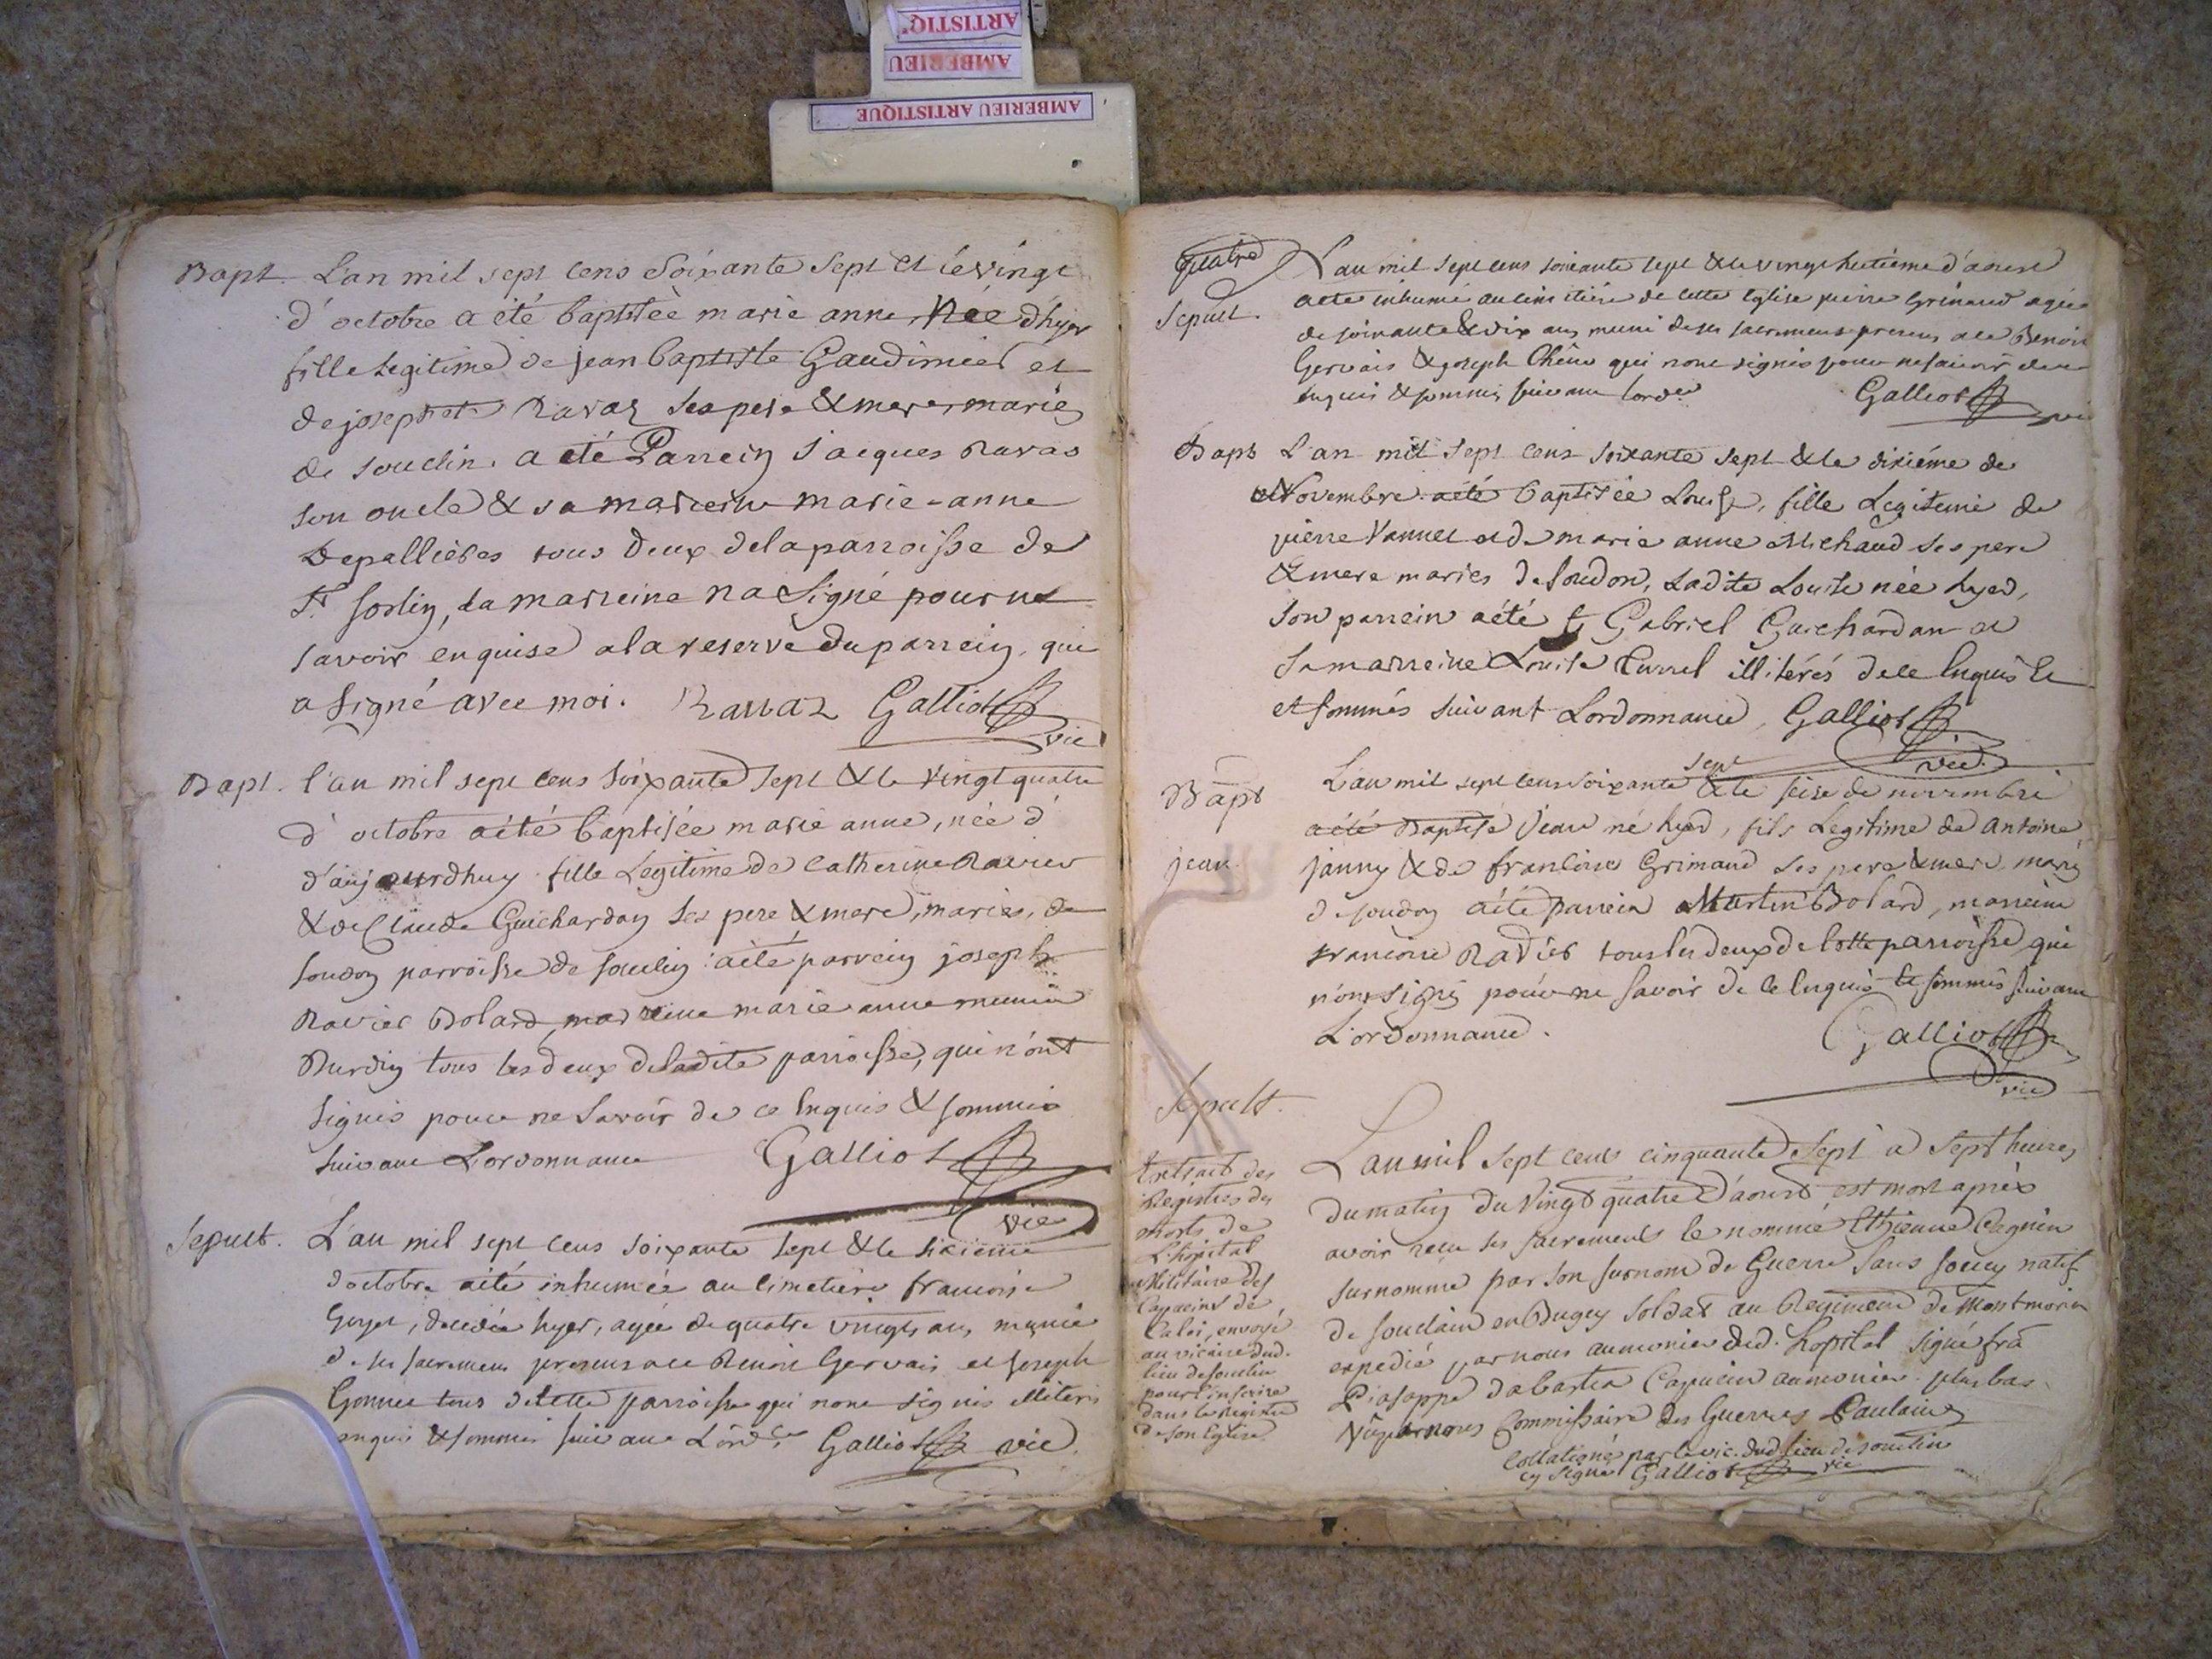 ARTISTIQ'
AMBERIEU
AMBERIEU ARTISTIQUE
Bapt. L'an mil sept cens Soixante Sept et le vingt
d'octobre a été baptisée marie anne Née d'hyer
fille legitime de jean baptiste Gaudimier et
de josephte Ravaz ses pere & mere, mariés
de souclin. a été Parrein jacques Ravas
son oncle & sa marreine marie-anne
Depallières tous deux de la parroisse de
St. Sorlin, la marreine n'a signé pour ne
savoir enquise a la reserve du parrein, qui
a signé avec moi. Ravaz Galliot
vic
Bapt. l'an mil sept cens soixante sept & le vingt quatre
d'octobre a été baptisée marie anne, née d'
d'aujourdhuy fille Legitime de Catherine Ravier
& de Claude Guichardon ses pere & mere, mariés, de
soudon parroisse de souclin a été parrein joseph
Ravier Bolard, marreine marie anne
tous les deux de ladite parroisse, qui n'ont
signés pour ne savoir de ce Enquis & sommés
suivant L'ordonnance Galliot
vic
Sepult. L'an mil sept cens soixante sept & le sixieme
d'octobre a été inhumée au cimetiere francoise
Goyet, decedée hyer, agée de quatre vingts ans munie
de ses sacremens presens a ce Benoit Gervais et joseph
tous de cette parroisse qui n'ont signés
enquis & sommés suivant L'ord.ce Galliot vic.
quatre L'an mil sept cens soixante sept & le vingt huitième d'aoust
Sepult. a été inhumé au cimetière de cette Eglise pierre Grimaud agée
de soixante & dix ans, muni de ses sacremens presens a ce Benoit
Gervais & joseph Chêne qui n'ont signés pour ne savoir de ce
enquis & sommés suivant l'ord. Galliot
vic
Bapt L'an mil sept cens soixante sept & le dixiéme de
Novembre a été baptisée Louise, fille Legitime de
pierre Vannet et de marie anne Michaud ses pere
& mere mariés de soudon, Ladite Louise née hyer,
Son parrein a été Gabriel Guichardan et
sa marreine Louise illiterés de ce Enquis
et sommés suivant L'ordonnance, Galliot
vic.
Bapt L'an mil sept cens soixante sept & le seise de novembre
a été Baptisé Jean né hyer, fils Legitime de antoine
jean janny & de francoise Grimaud ses pere & mere mariés
de soudon a été parrein Martin Bolard, marreine
francoise Ravier tous les deux de cette parroisse qui
n'ont signés pour ne savoir de ce Enquis & sommés suivant
L'ordonnance. Galliot
vic
Sepult.
Extrait des
Registres des
Morts de
L'hopital
Militaire des
Capucins de
Calvi, envoyé
au vicaire dud.
lieu de souclin
pour l'inscrire
dans le Registre
de son Eglise
L'an mil sept cens cinquante sept a sept heures
du matin du vingt quatre d'aoust est mort après
avoir reçu les sacremens le nommé Ethienne Cagnin
surnommé par son surnom de Guerre Sans soucy natif
de souclain en Bugey soldat au Regiment de Montmorin
expedié par nous aumonier dud. hopital signé fra
Capucin aumonier. plus bas
Vû par nous Commissaire des Guerres Paulain
Collationé par le vic. dud lieu de souclin
cy signé Galliot vic